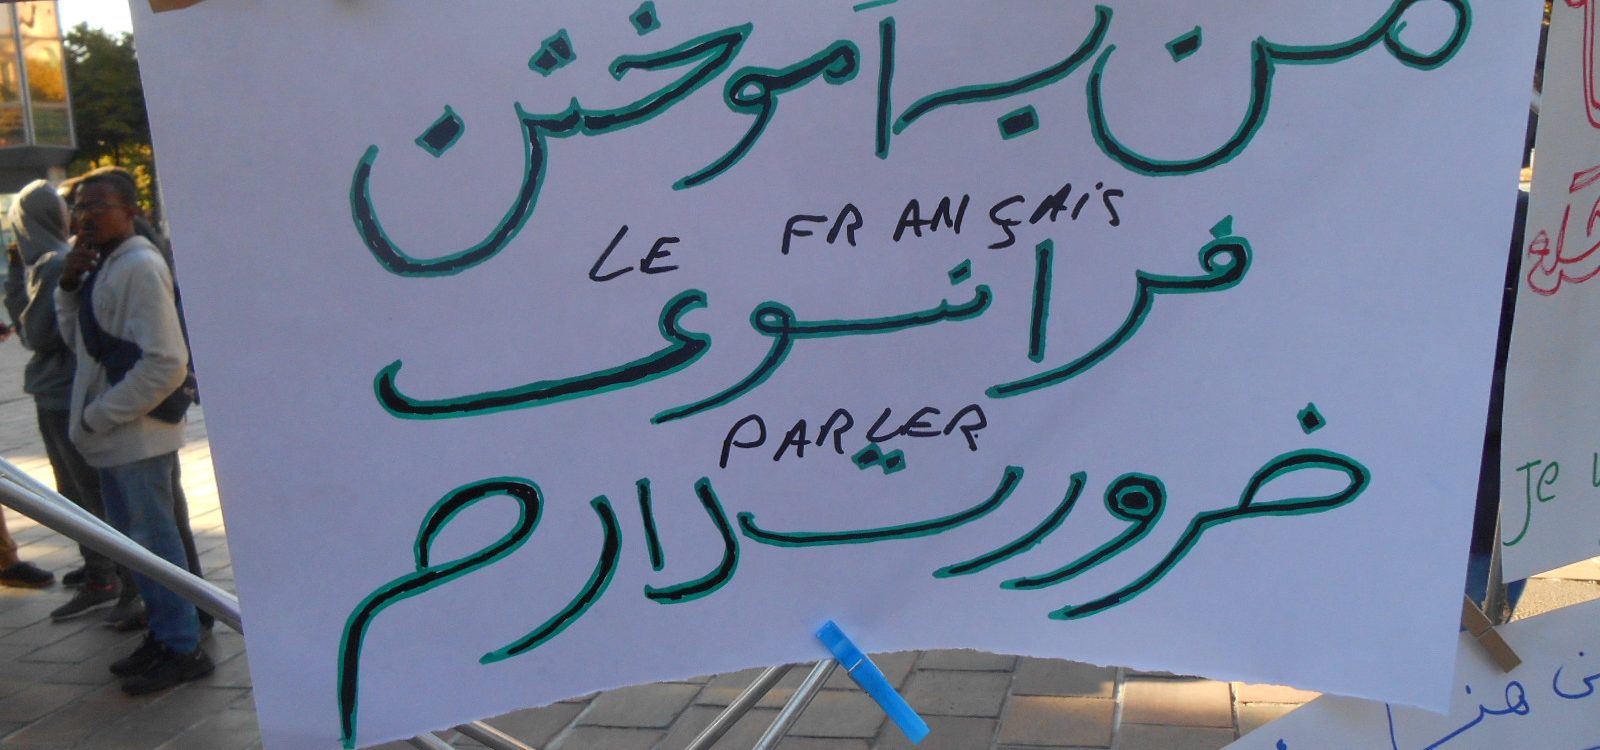 من به آموختن
LE FRANÇAIS
فرانسوی
PARLER
ضرورت دارم
Je